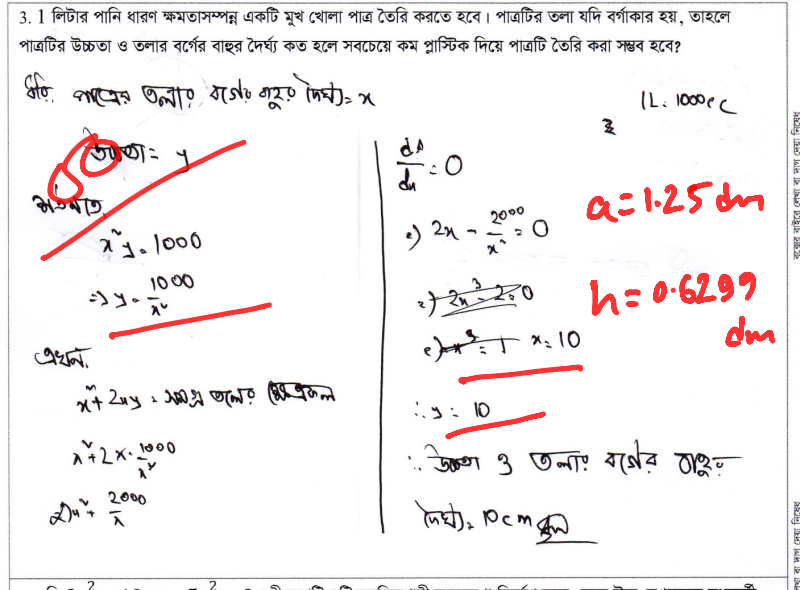 3. 1 লিটার পানি ধারণ ক্ষমতাসম্পন্ন একটি মুখ খোলা পাত্র তৈরি করতে হবে। পাত্রটির তলা যদি বর্গাকার হয়, তাহলে
পাত্রটির উচ্চতা ও তলার বর্গের বাহুর দৈর্ঘ্য কত হলে সবচেয়ে কম প্লাস্টিক দিয়ে পাত্রটি তৈরি করা সম্ভব হবে?
ধরি, পাত্রের তলার বর্গের বাহুর দৈর্ঘ্য = x
1L = 1000 cc
উচ্চতা = y
x²y = 1000
=> y = 1000/x²
এখন,
x² + 2xy = সমগ্র তলের ক্ষেত্রফল
x² + 2x · 1000/x²
=> x² + 2000/x
dA/dx = 0
=> 2x - 2000/x² = 0
=> 2x³ - 2 = 0
=> x³ = 1 x = 10
∴ y = 10
∴ উচ্চতা ও তলার বর্গের বাহুর
দৈর্ঘ্য = 10 cm
a = 1.25 dm
h = 0.6299
dm